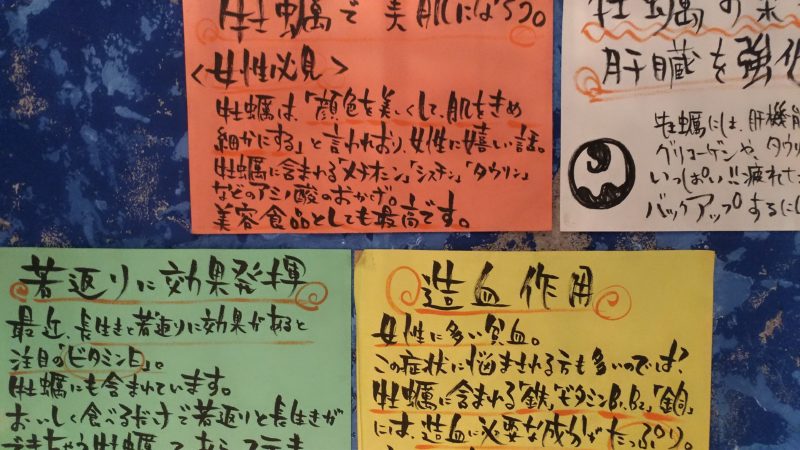 牡蠣で美肌になろう。
<女性必見>
牡蠣は、「顔色を美しくして、肌をきめ
細かにする」と言われおり、女性に嬉しい話。
牡蠣に含まれる「メチオニン」「システン」「タウリン」
などのアミノ酸のおかげ。
美容食品としても最高です。
牡蠣の栄
肝臓を強化
牡蠣には、肝機能
グリコーゲンや、タウリ
いっぱい!!疲れた
バックアップするに
若返りに効果発揮
最近、長生きと若返りに効果があると
注目の「ビタミンE」。
牡蠣にも含まれています。
おいしく食べるだけで若返りと長生きが
できちゃう牡蠣って
造血作用
女性に多い貧血。
この症状に悩まされる方も多いのでは?
牡蠣に含まれる「鉄」「ビタミンB1、B2」「銅」
には、造血に必要な成分がたっぷり。